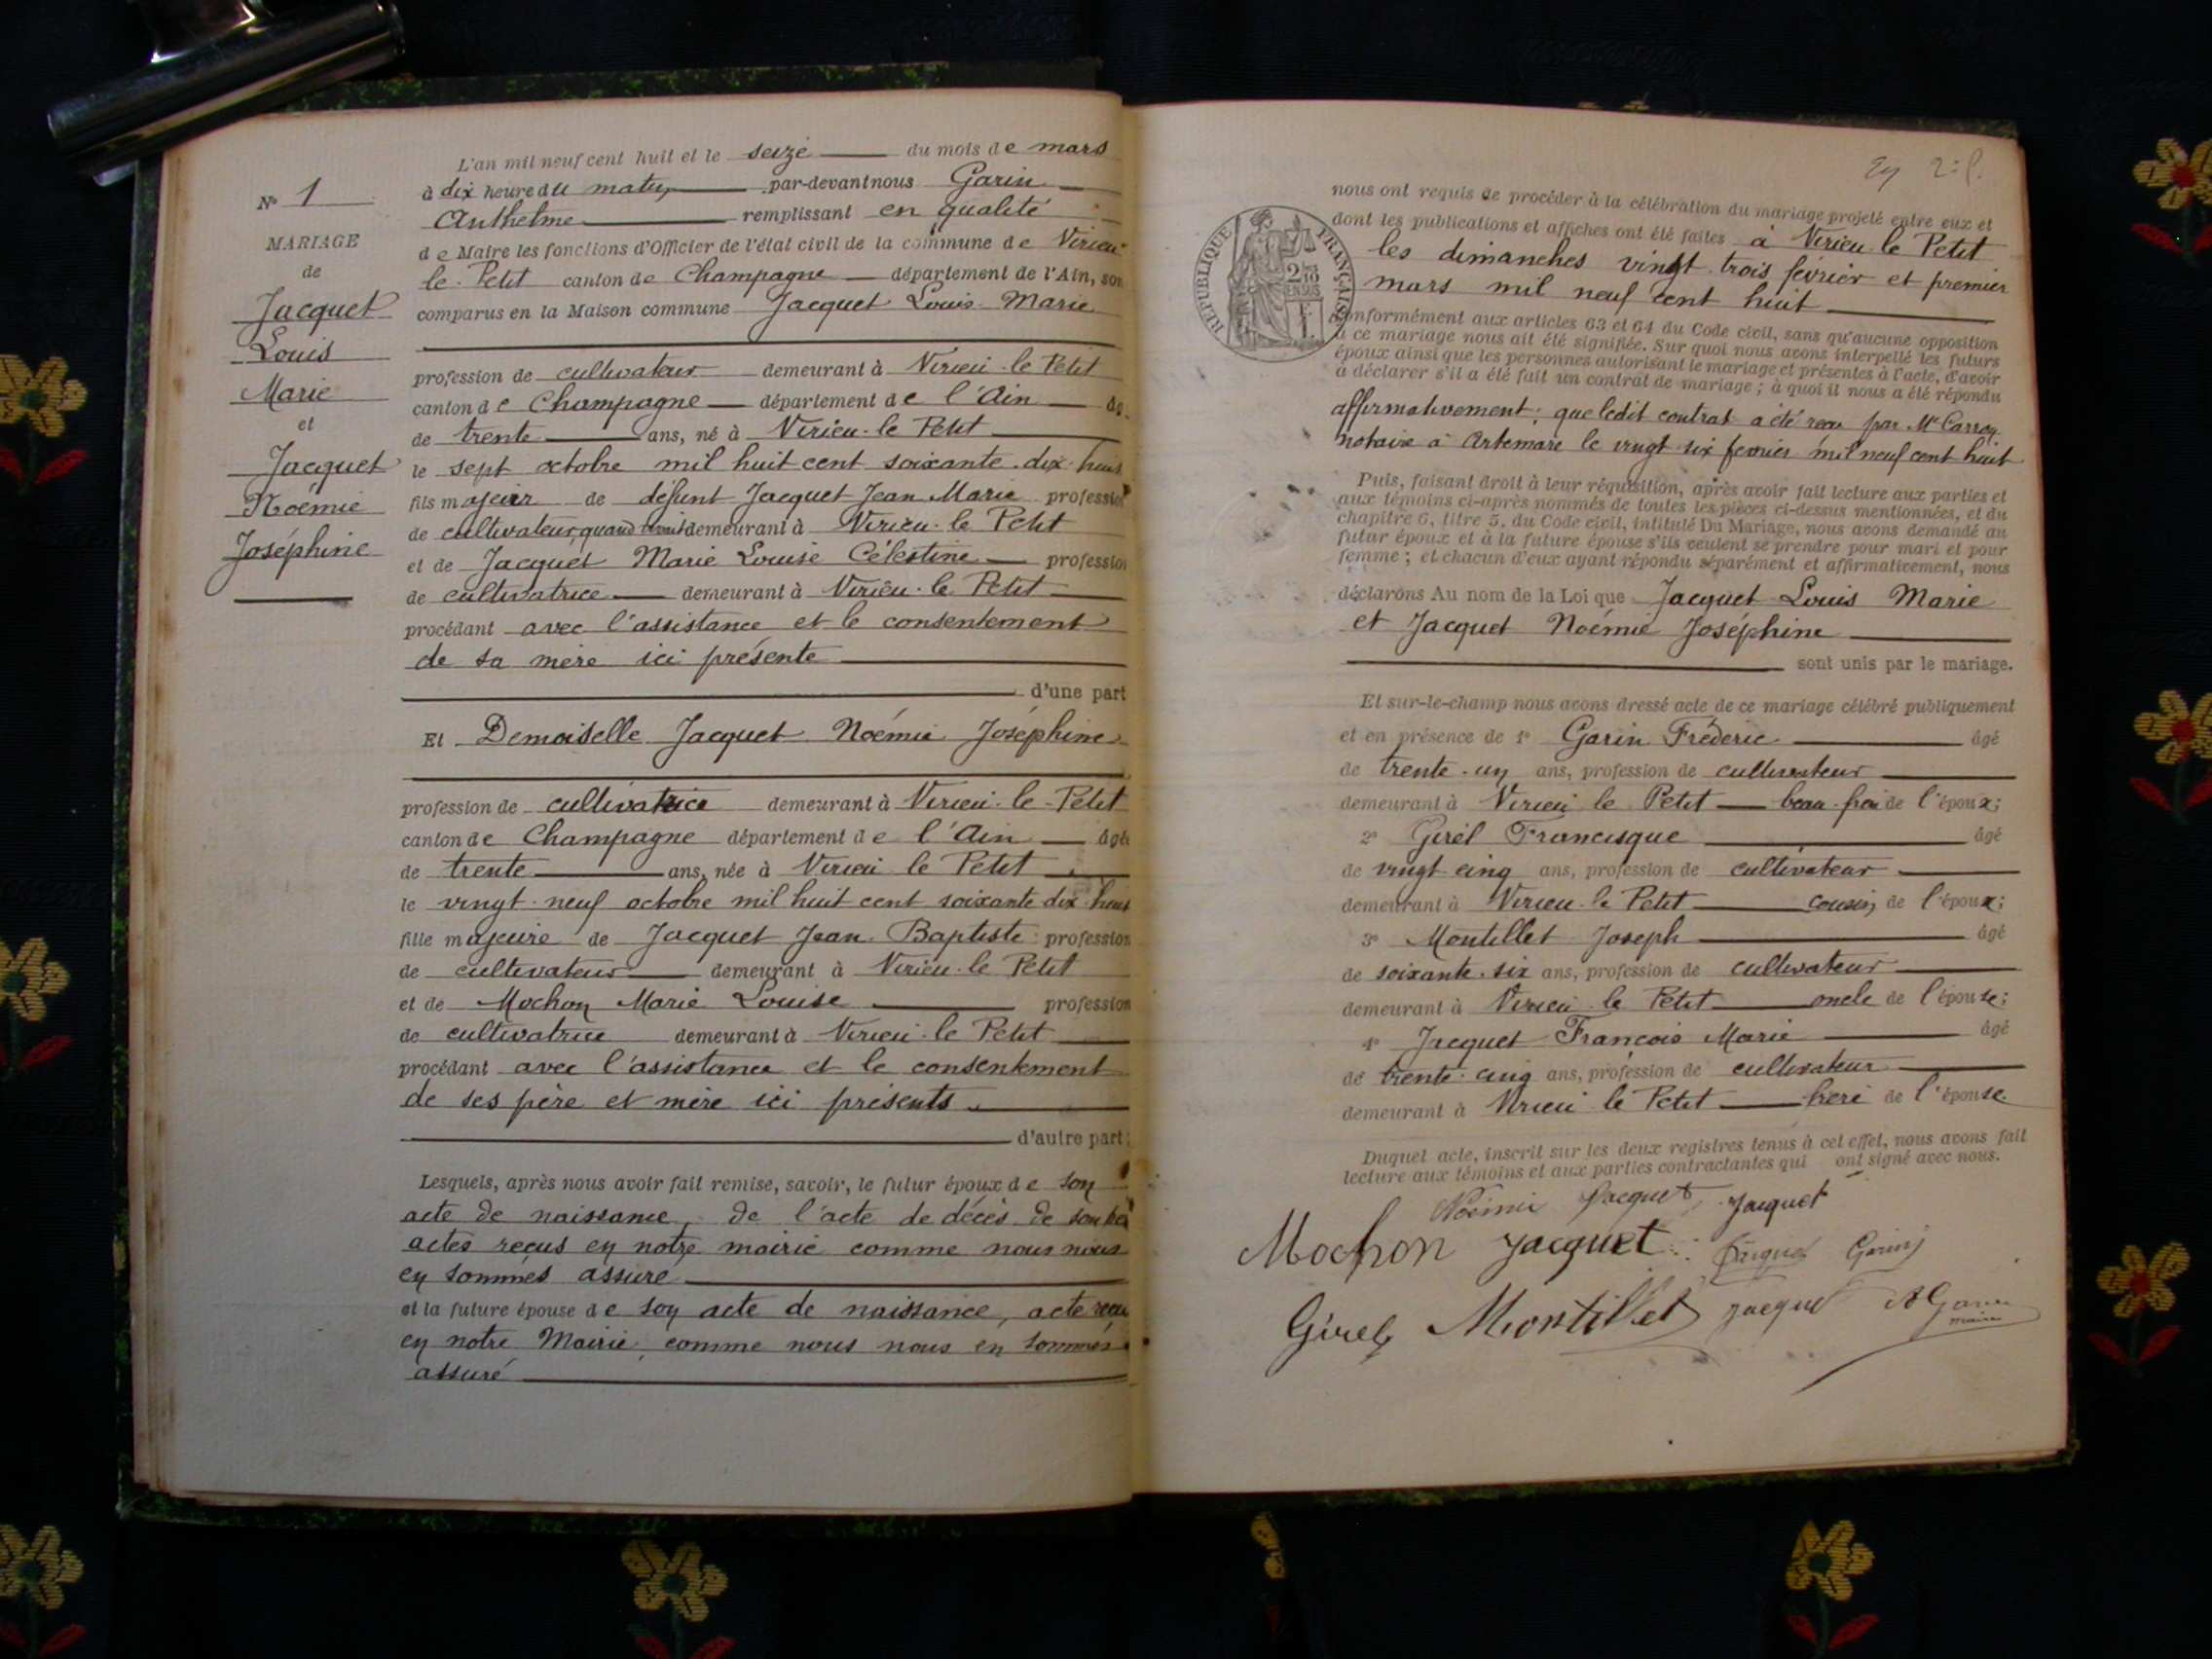 N° 1
MARIAGE
de
Jacquet
Louis
Marie
et
Jacquet
Noémie
Joséphine
L'an mil neuf cent huit et le seize du mois de mars
à dix heure du matin par-devant nous Garin
Anthelme remplissant en qualité
de Maire les fonctions d'Officier de l'état civil de la commune de Virieu
le-Petit canton de Champagne département de l'Ain, son
comparus en la Maison commune Jacquet Louis Marie
profession de cultivateur demeurant à Virieu-le Petit
canton de Champagne département de l'Ain âg
de trente ans, né à Virieu-le Petit
le sept octobre mil huit cent soixante-dix-huit
fils majeur de défunt Jacquet Jean Marie profession
de cultivateur, quand vivait demeurant à Virieu-le Petit
et de Jacquet Marie Louise Célestine profession
de cultivatrice demeurant à Virieu-le Petit
procédant avec l'assistance et le consentement
de sa mère ici présente
d'une part
Et Demoiselle Jacquet Noémie Joséphine
profession de cultivatrice demeurant à Virieu-le-Petit
canton de Champagne département de l'Ain âgée
de trente ans, née à Virieu le Petit
le vingt-neuf octobre mil huit cent soixante dix-huit
fille majeure de Jacquet Jean-Baptiste profession
de cultivateur demeurant à Virieu-le Petit
et de Mochon Marie Louise profession
de cultivatrice demeurant à Virieu-le Petit
procédant avec l'assistance et le consentement
de ses père et mère ici présents.
d'autre part;
Lesquels, après nous avoir fait remise, savoir, le futur époux de son
acte de naissance, de l'acte de décès de son
actes reçus en notre mairie comme nous nous
en sommes assuré
et la future épouse de son acte de naissance, acte reçu
en notre Mairie, comme nous nous en sommes
assuré
2
RÉPUBLIQUE FRANÇAISE
2/10
EN SUS
nous ont requis de procéder à la célébration du mariage projeté entre eux et
dont les publications et affiches ont été faites à Virieu-le Petit
les dimanches vingt-trois février et premier
mars mil neuf cent huit
conformément aux articles 63 et 64 du Code civil, sans qu'aucune opposition
à ce mariage nous ait été signifiée. Sur quoi nous avons interpellé les futurs
époux ainsi que les personnes autorisant le mariage et présentes à l'acte, d'avoir
à déclarer s'il a été fait un contrat de mariage; à quoi il nous a été répondu
affirmativement; que ledit contrat a été reçu par Me
notaire à Artemare le vingt-six fevrier mil neuf cent huit
Puis, faisant droit à leur réquisition, après avoir fait lecture aux parties et
aux témoins ci-après nommés de toutes les pièces ci-dessus mentionnées, et du
chapitre 6, titre 5, du Code civil, intitulé Du Mariage, nous avons demandé au
futur époux et à la future épouse s'ils veulent se prendre pour mari et pour
femme; et chacun d'eux ayant répondu séparément et affirmativement, nous
déclarons Au nom de la Loi que Jacquet Louis Marie
et Jacquet Noémie Joséphine
sont unis par le mariage.
Et sur-le-champ nous avons dressé acte de ce mariage célébré publiquement
et en présence de 1° Garin Fréderic âgé
de trente-un ans, profession de cultivateur
demeurant à Virieu le Petit beau-frère de l'époux;
2° Girel Francisque âgé
de vingt-cinq ans, profession de cultivateur
demeurant à Virieu-le Petit cousin de l'époux;
3° Montillet Joseph âgé
de soixante-six ans, profession de cultivateur
demeurant à Virieu le Petit oncle de l'épouse;
4° Jacquet François Marie âgé
de trente-cinq ans, profession de cultivateur
demeurant à Virieu le Petit frère de l'épouse
Duquel acte, inscrit sur les deux registres tenus à cet effet, nous avons fait
lecture aux témoins et aux parties contractantes qui ont signé avec nous.
Noémie Jacquet Jacquet
Mochon Jacquet Jacquet Garin
Girel Montillet Jacquet A Garin
maire